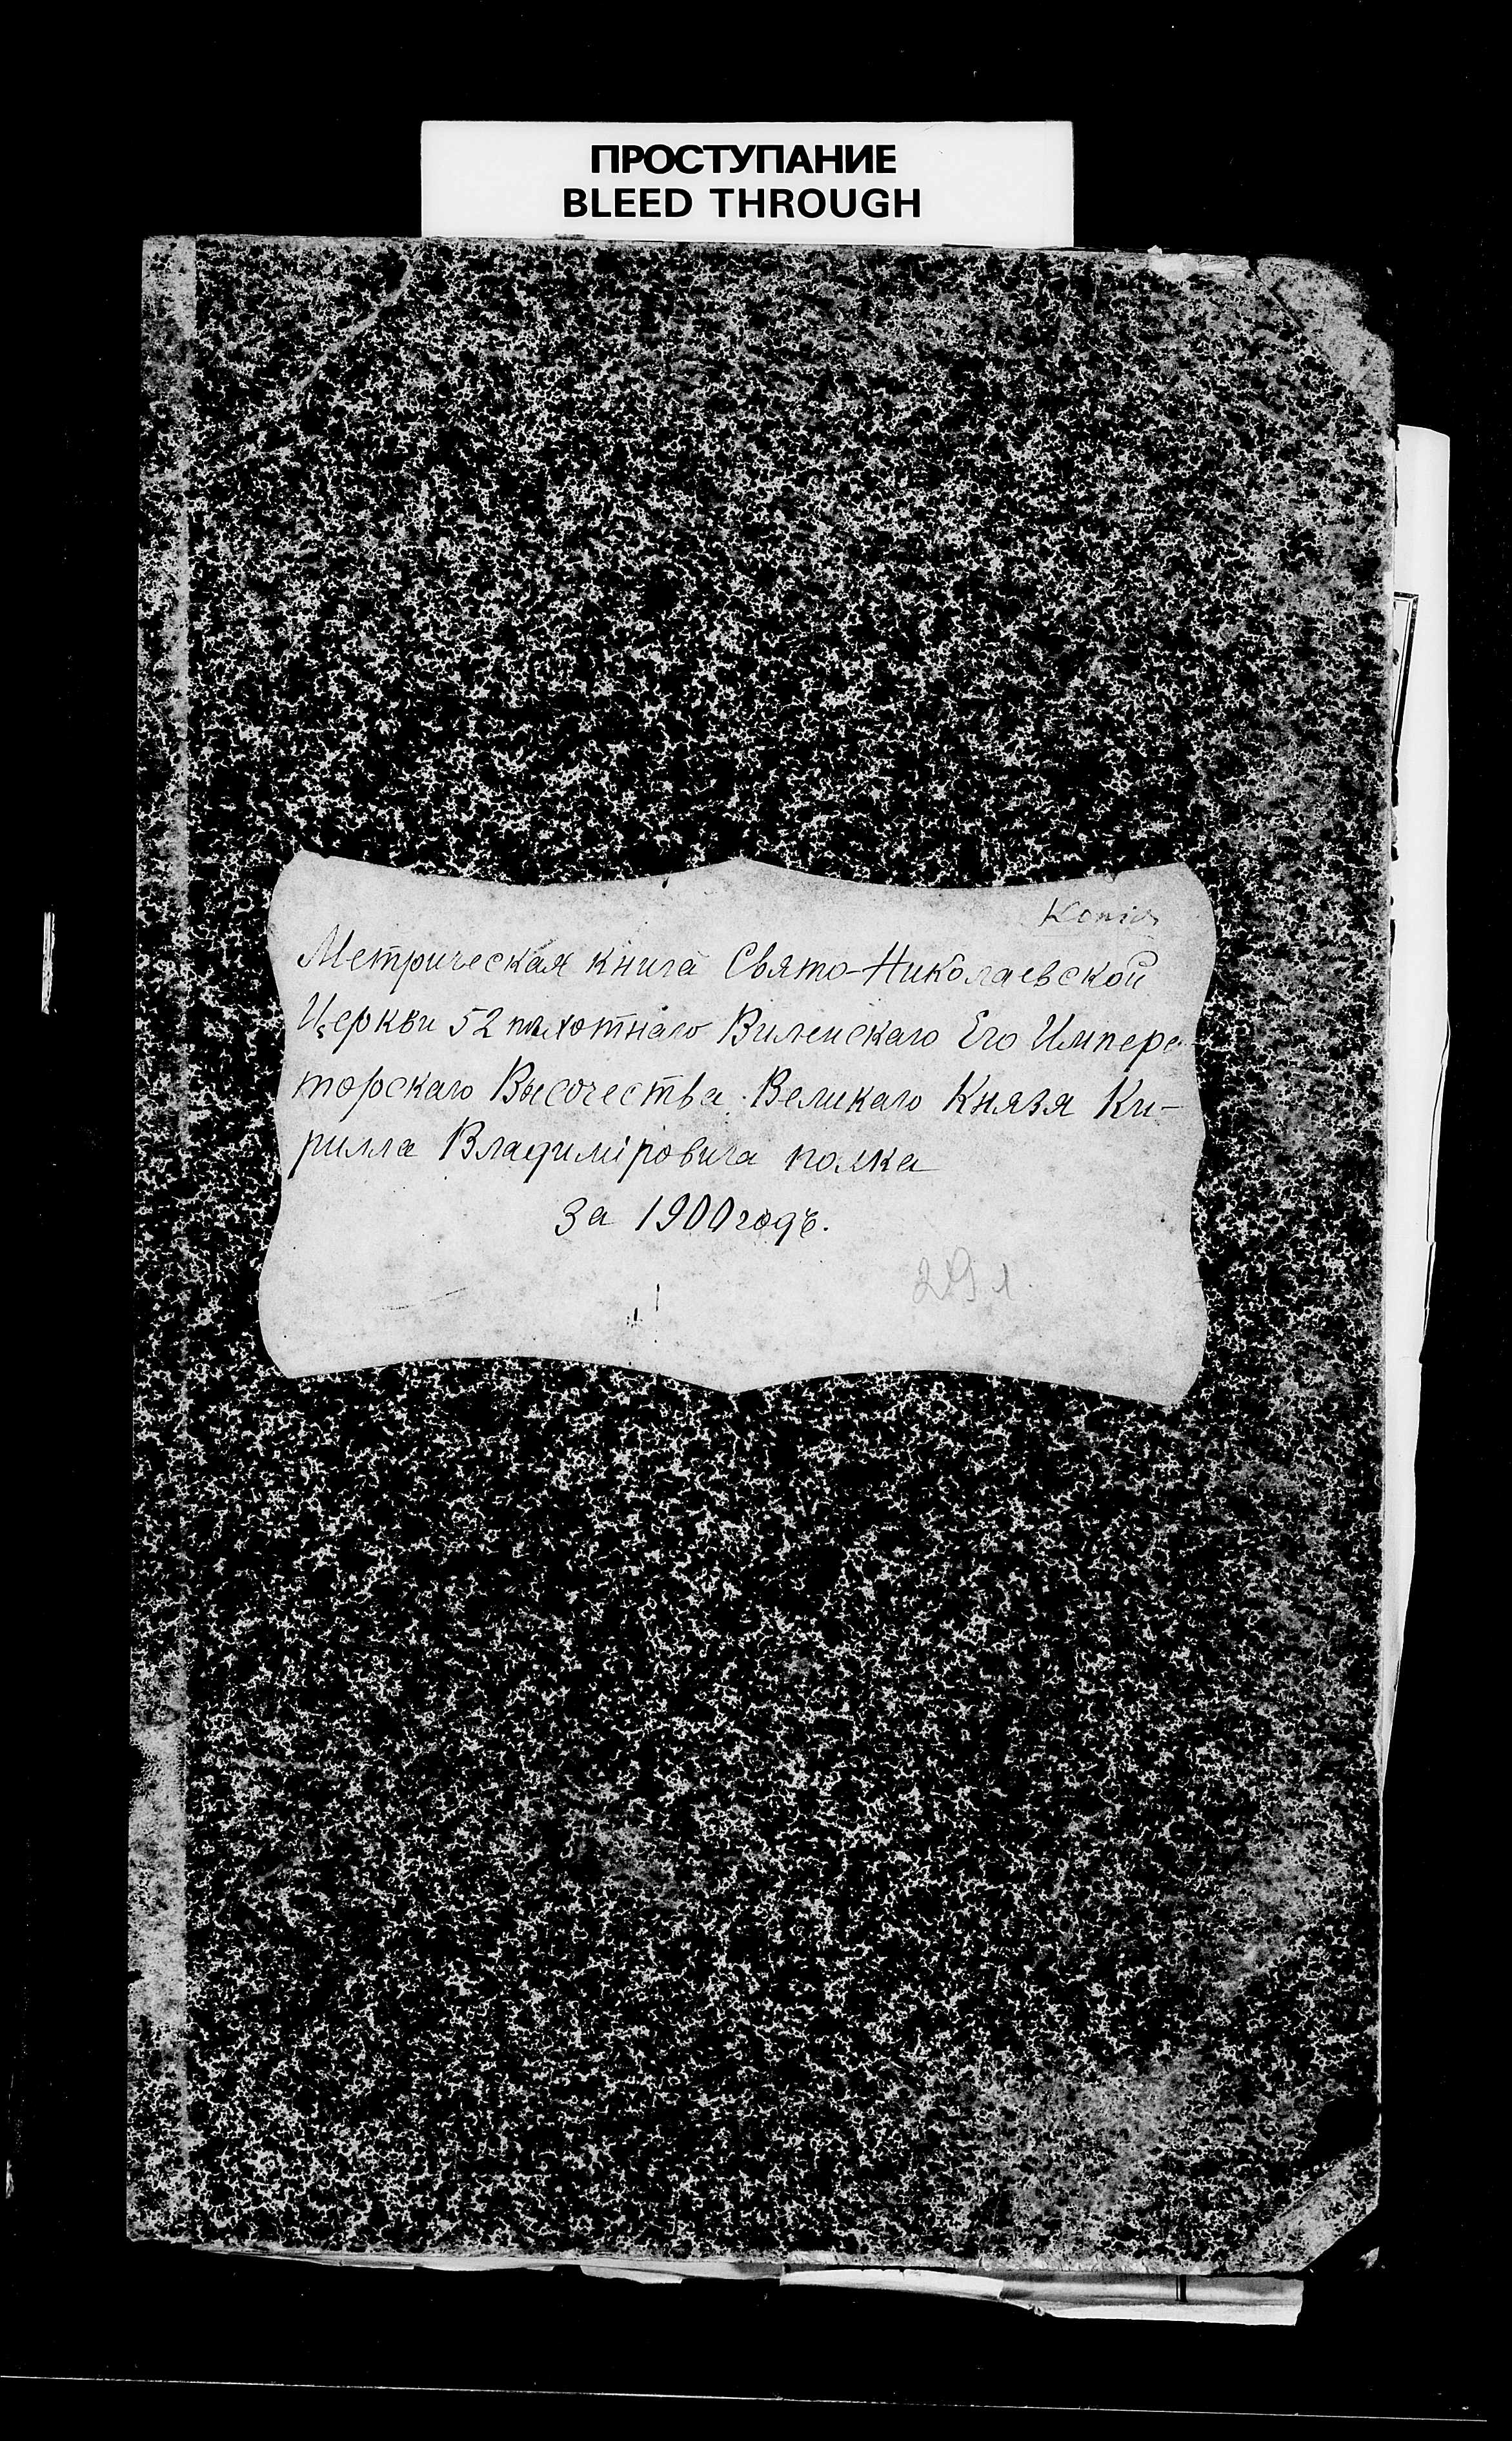 ПРОСТУПАНИЕ
BLEED THROUGH
Копія
Метрическая книга Свято-Николаевской
Церкви 52 пѣхотнаго Виленскаго Его Импера-
торскаго Высочества Великаго Князя Ки-
рилла Владиміровича полка
За 1900 годъ.
29 л.